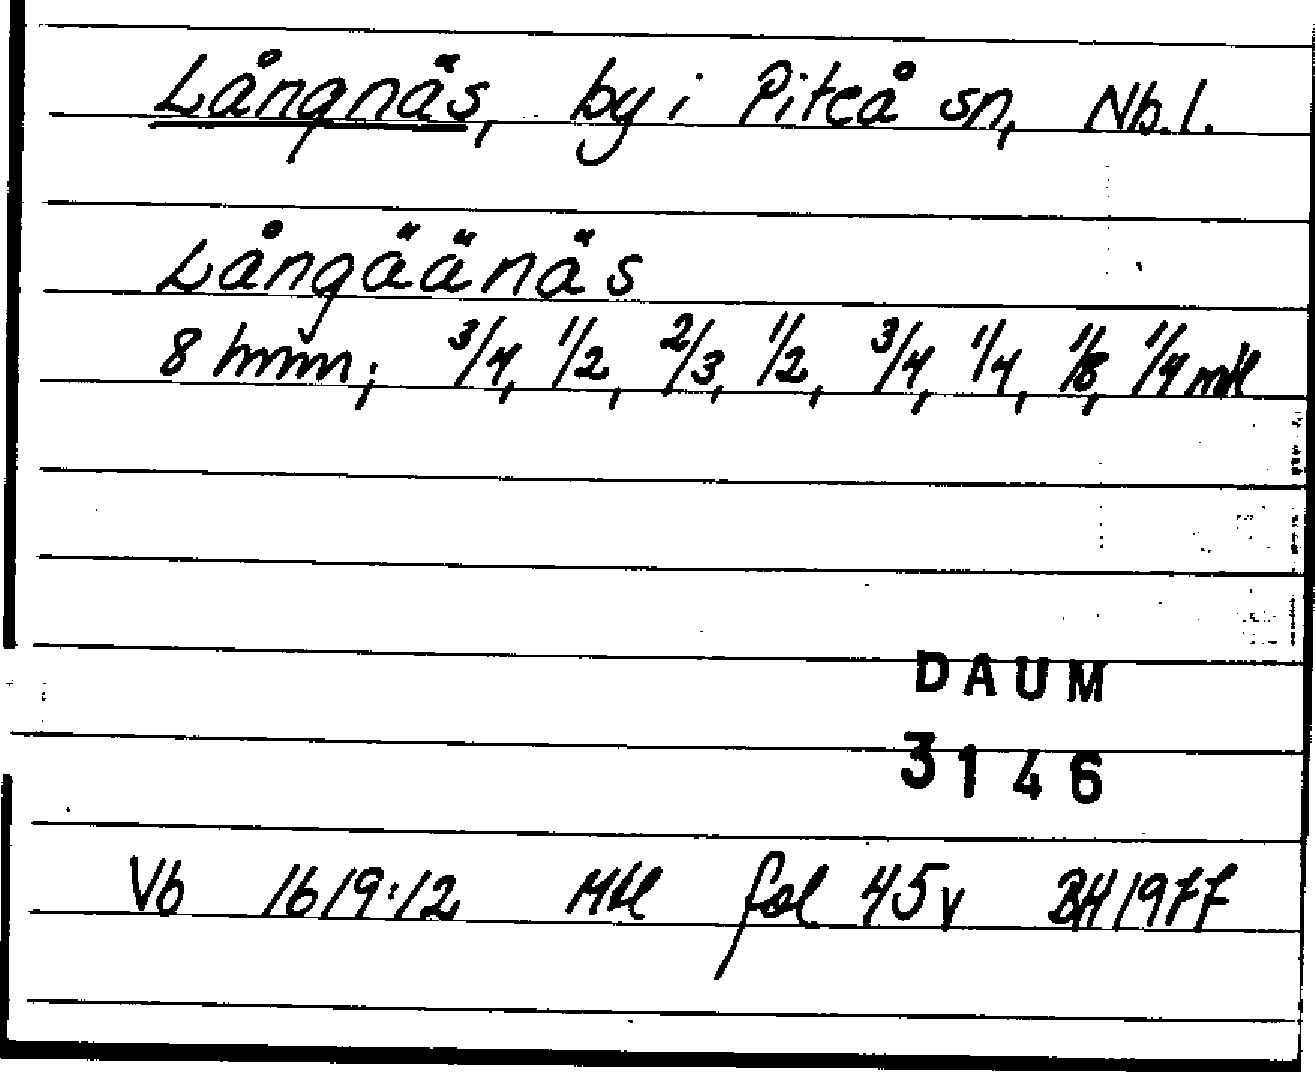 Långnäs, by i Piteå sn, Nb.l.
Långäänäs
8 hmn; 3/4, 1/2, 2/3, 1/2, 3/4, 1/4, 1/8, 1/4 mtl
DAUM
3146
Vb 1619:12 Mtl fol 45v BH 1977